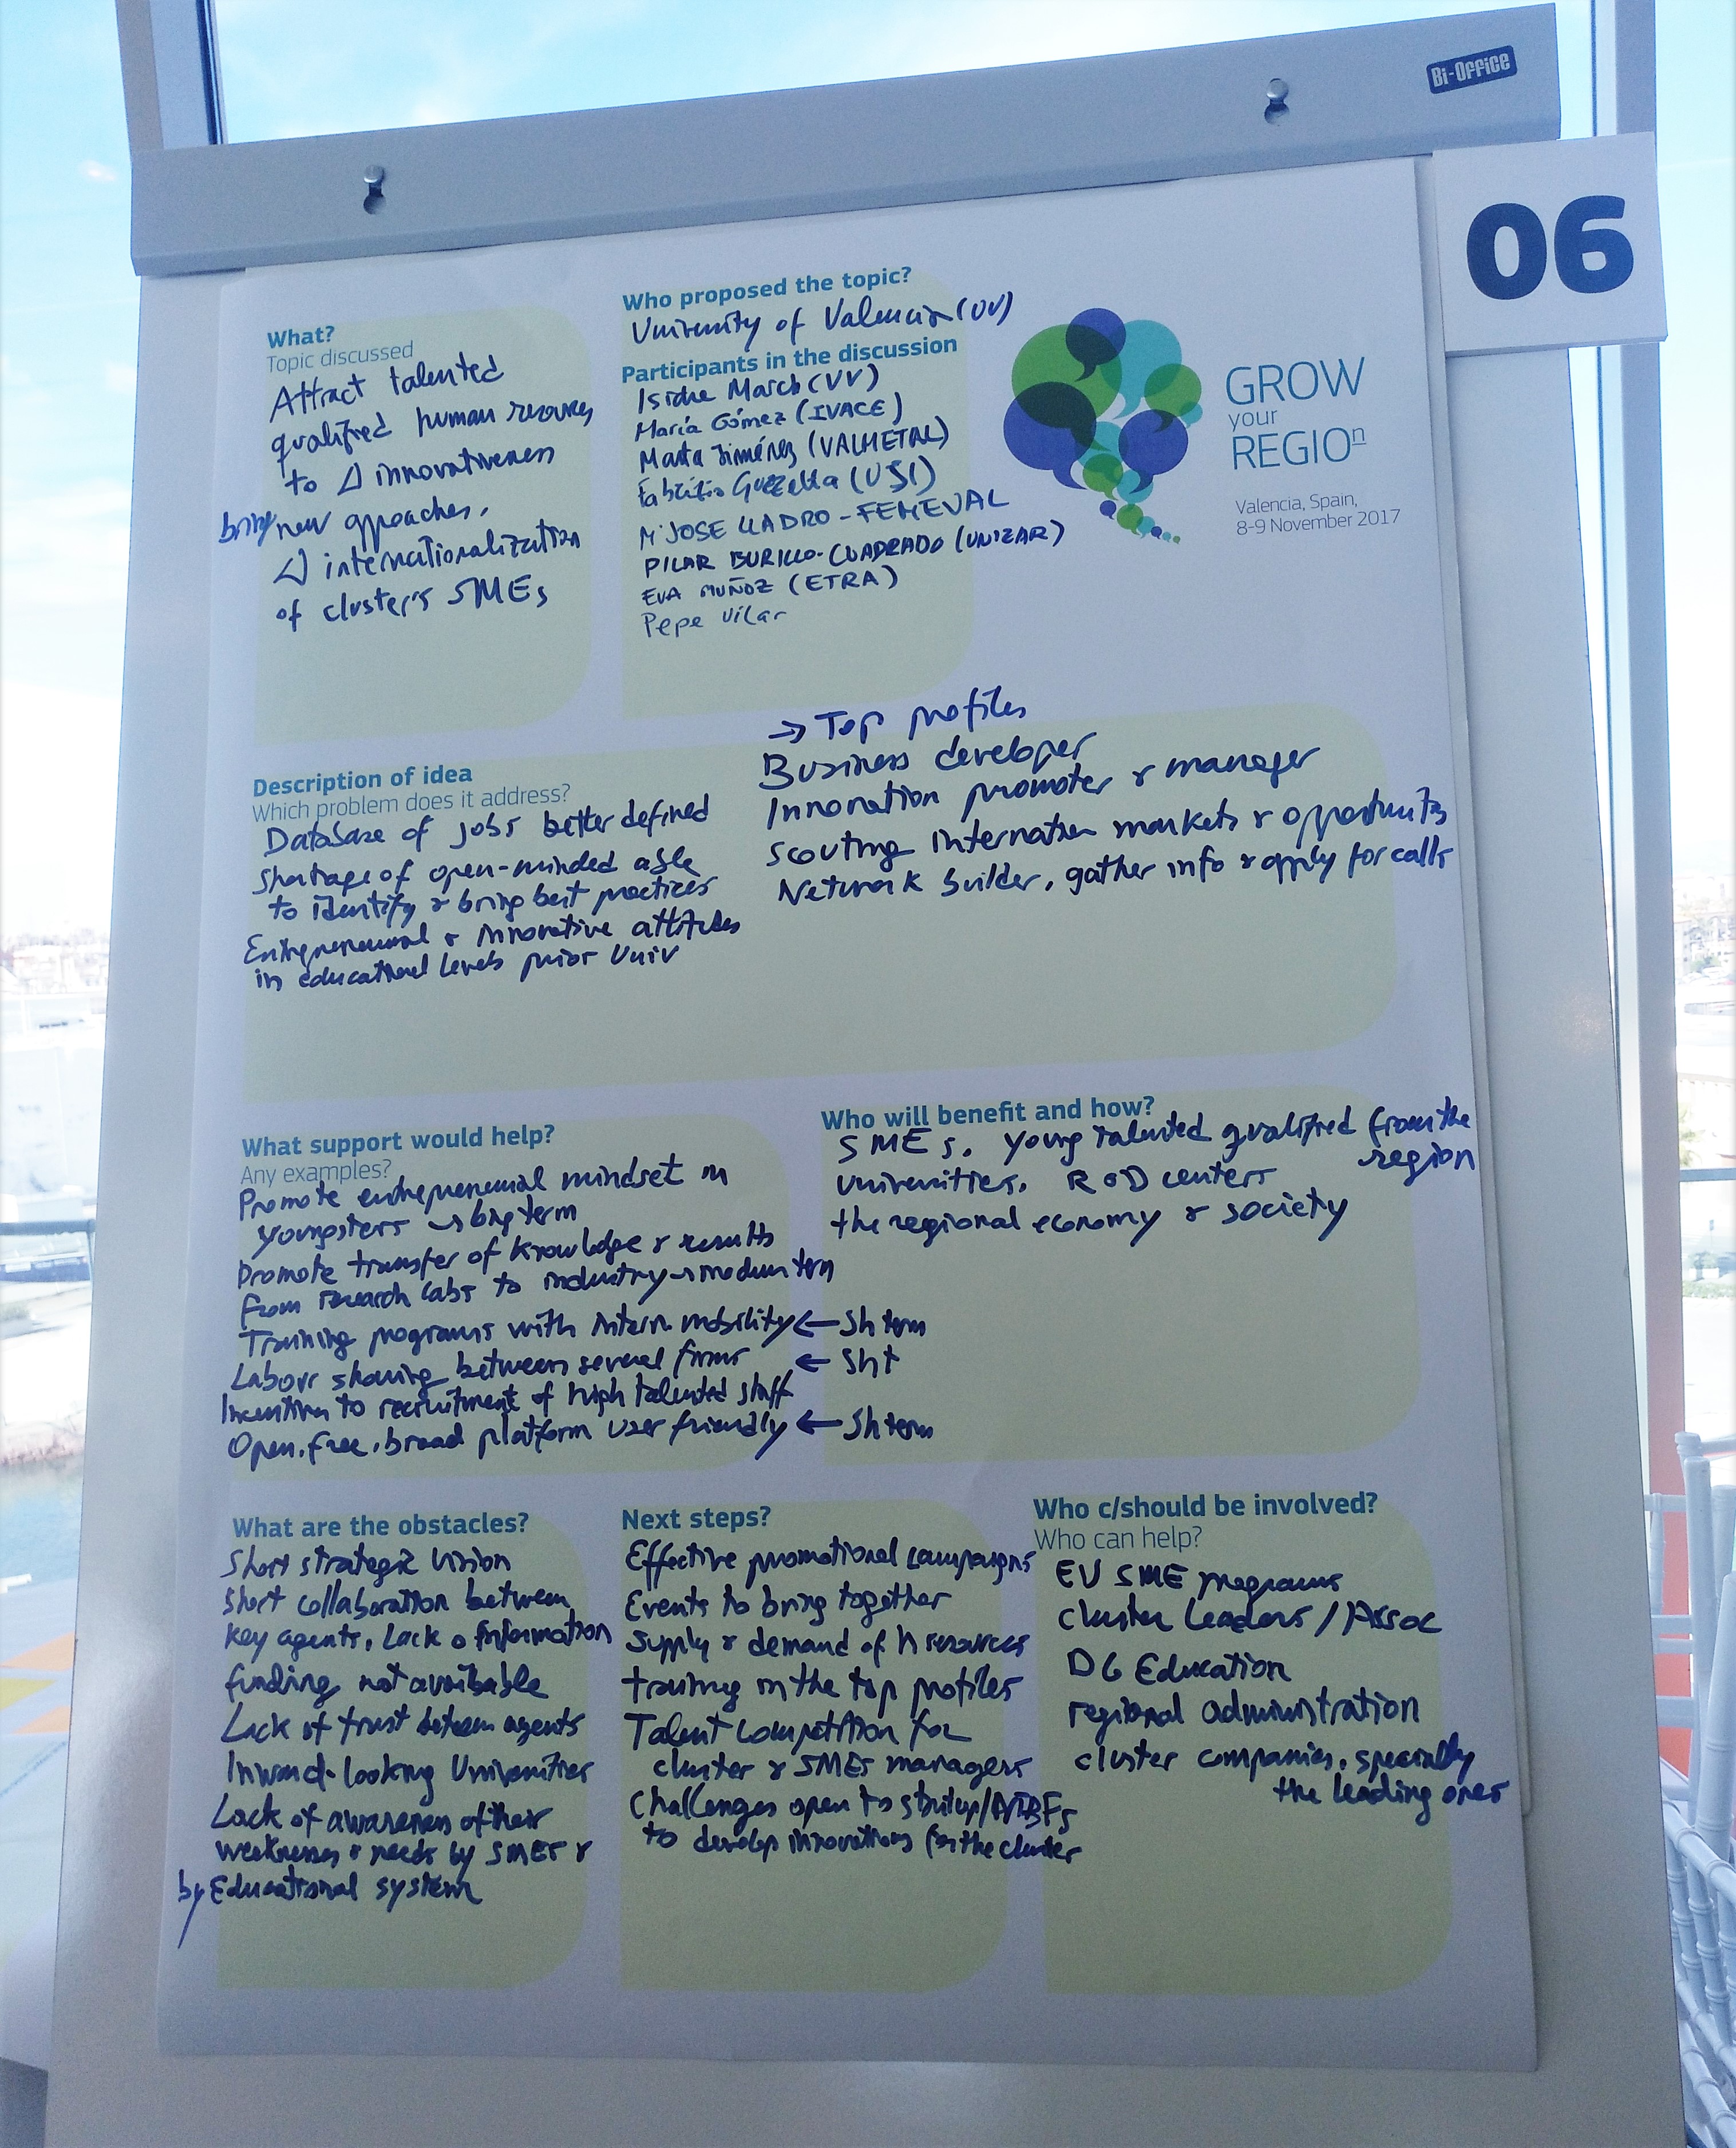 Bi-Office
06
What?
Topic discussed
Attract talented
qualified human resources
to △ innovativeness
bring new approaches,
△ internationalization
of cluster's SMEs
Who proposed the topic?
University of Valencia (UV)
Participants in the discussion
Isidre March (UV)
María Gómez (IVACE)
Marta Jiménez (VALMETAL)
Fabrizio Guzzetta (USI)
Mª JOSE LLADRO - FEMEVAL
PILAR BURILLO-CUADRADO (UNIZAR)
EVA MUÑOZ (ETRA)
Pepe Vilar
GROW
your
REGIOn
Valencia, Spain,
8-9 November 2017
Description of idea
Which problem does it address?
Database of jobs better defined
Shortage of open-minded able
to identify & bring best practices
Entrepreneurial & innovative attitudes
in educational levels prior Univ
→ Top profiles
Business developer
Innovation promoter & manager
Scouting internation markets & opportunits
Network builder, gather info & apply for calls
What support would help?
Any examples?
Promote entrepreneurial mindset in
youngsters → long term
Promote transfer of knowledge & results
from research labs to industry → medium term
Training programs with intern. mobility ← Sh term
Labour sharing between several firms ← Sh t
Incentives to recruitment of high talented staff
Open, free, broad platform user friendly ← Sh term
Who will benefit and how?
SMEs, young talented qualified from the
region
universities, R&D centers
the regional economy & society
What are the obstacles?
Short strategic vision
Short collaboration between
key agents, Lack o information
funding not available
Lack of trust between agents
Inward-looking Universities
Lack of awareness of their
weaknesses & needs by SMEs &
by Educational system
Next steps?
Effective promotional campaigns
Events to bring together
supply & demand of h resources
training in the top profiles
Talent competition for
cluster & SMEs managers
Challenges open to startup/NTBFs
to develop innovations for the cluster
Who c/should be involved?
Who can help?
EU SME programs
cluster Leaders / Assoc
DG Education
regional administration
cluster companies, specially
the leading ones